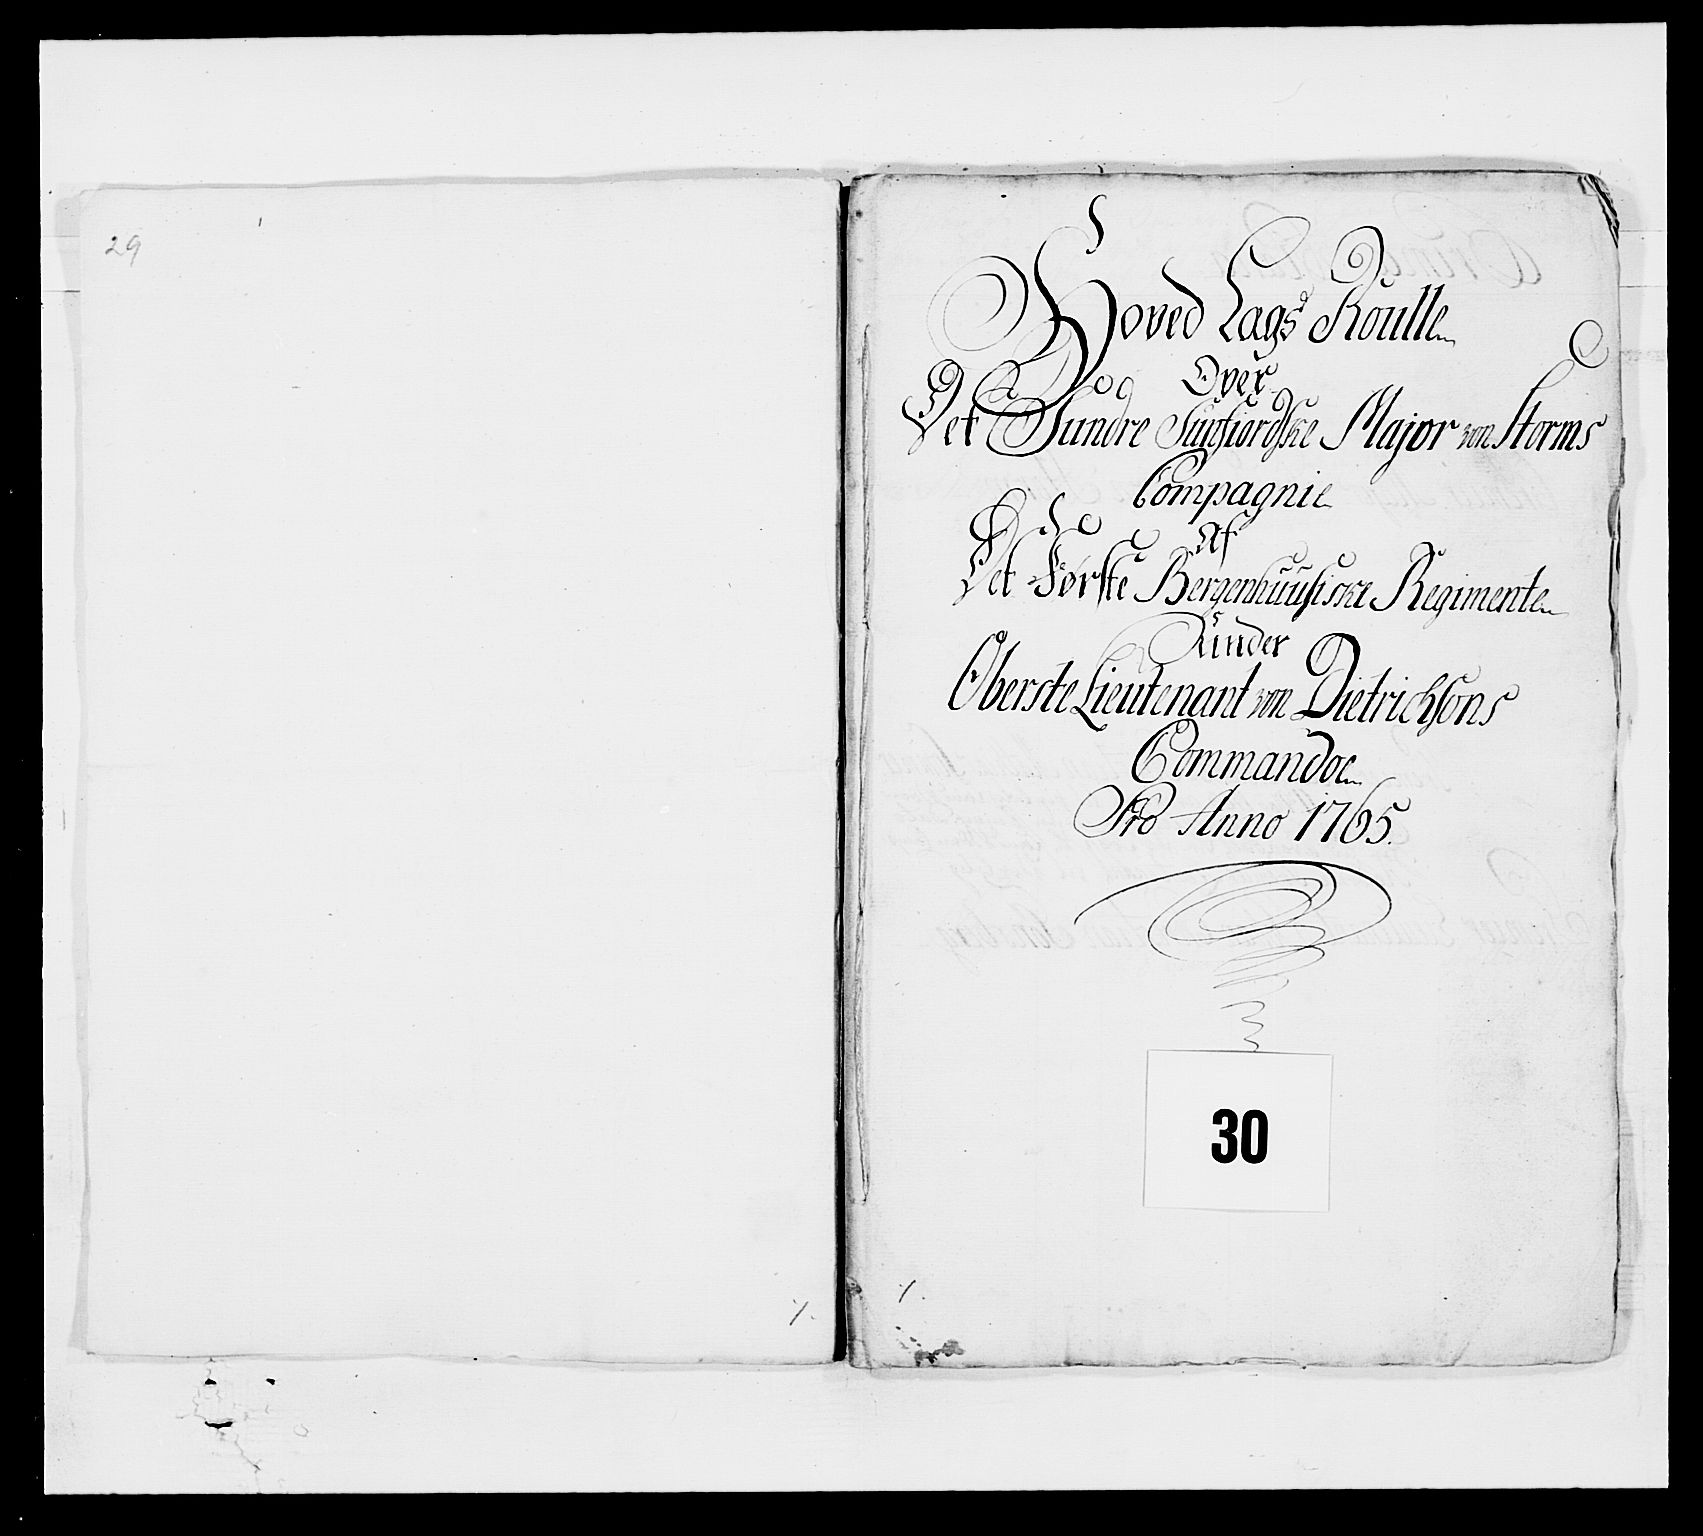 29
Hoved Lags Roulle
Over
Det Sundre Sunfiordske Major von Storms
Compagnie
Af
Det Første Bergenhuusiske Regimente
Under
Oberste Lieutenant von Dietrichsons
Commandoe
Pro Anno 1765.
30